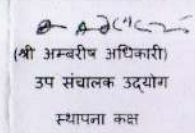 (श्री अम्बरीष अधिकारी)
उप संचालक उद्योग
स्थापना कक्ष